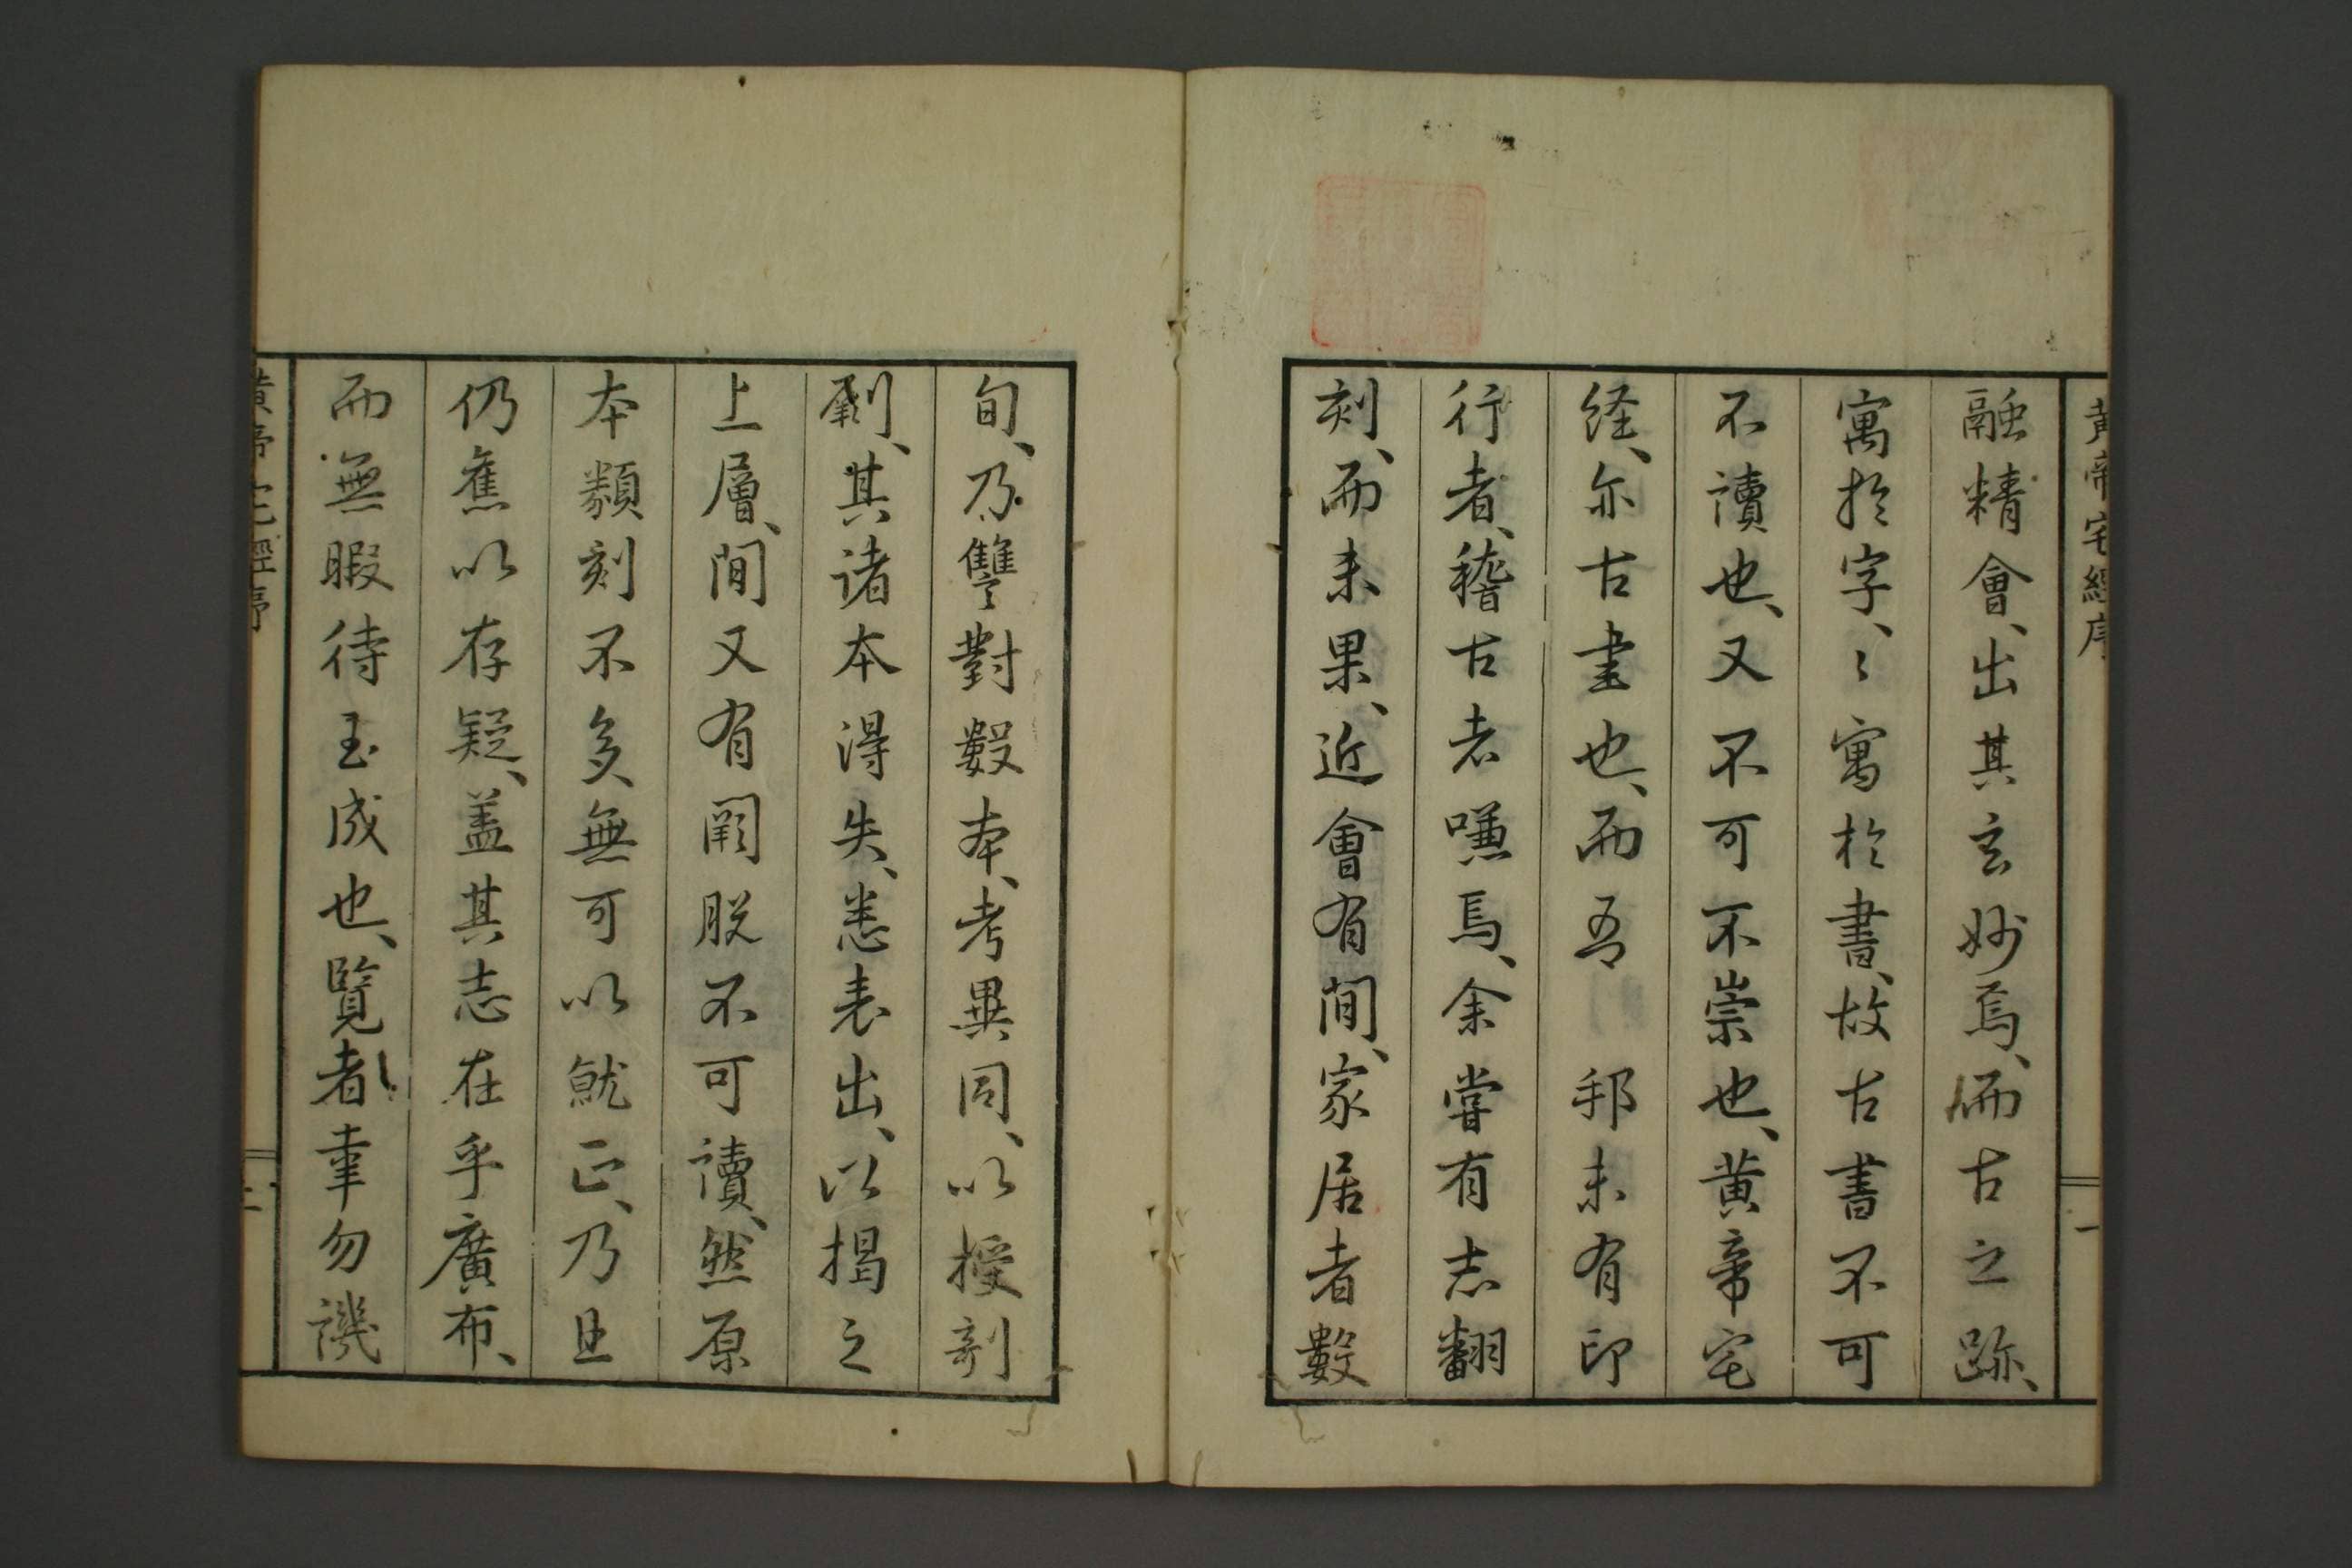 黄帝宅經序
一
融精會、出其玄妙焉、而古之跡、
寓於字、〻寓於書、故古書不可
不讀也、又不可不崇也、黄帝宅
経、亦古書也、而吾 邦未有印
行者、稽古者嗛焉、余嘗有志翻
刻、而未果、近會有間、家居者數
旬、乃讐對數本、考異同、以授剞
劂、其諸本得失、悉表出、以揭之
上層、間又有闕脱不可讀、然原
本類刻不多、無可以就正、乃且
仍舊以存疑、盖其志在乎廣布、
而無暇待玉成也、覧者幸勿譏
黄帝宅經序
二